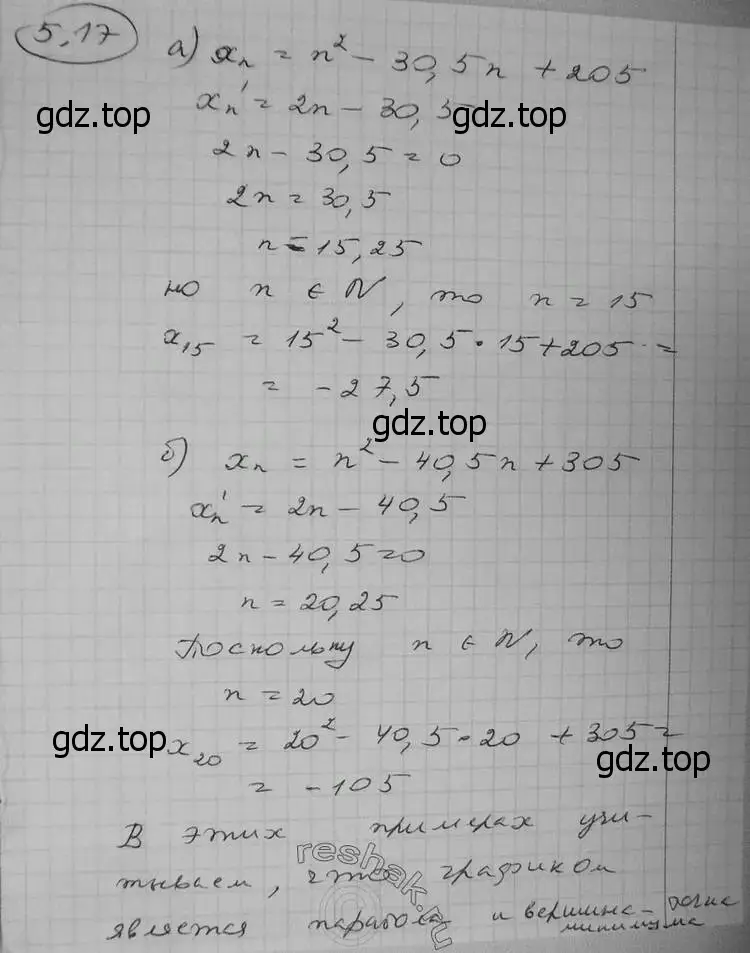 5.17
а) xₙ = n² - 30,5n + 205
xₙ' = 2n - 30,5
gdz.top gdz.top
2n - 30,5 = 0
2n = 30,5
n = 15,25
но n ∈ N, то n = 15
x₁₅ = 15² - 30,5 · 15 + 205 =
= -27,5
gdz.top
б) xₙ = n² - 40,5n + 305
xₙ' = 2n - 40,5
2n - 40,5 = 0
n = 20,25
Поскольку n ∈ N, то
n = 20
gdz.top x₂₀ = 20² - 40,5 · 20 + 305 =
= -105 gdz.top
В этих примерах учи-
тываем, что графиком
является парабола и вершина - точка
минимума
reshak.ru